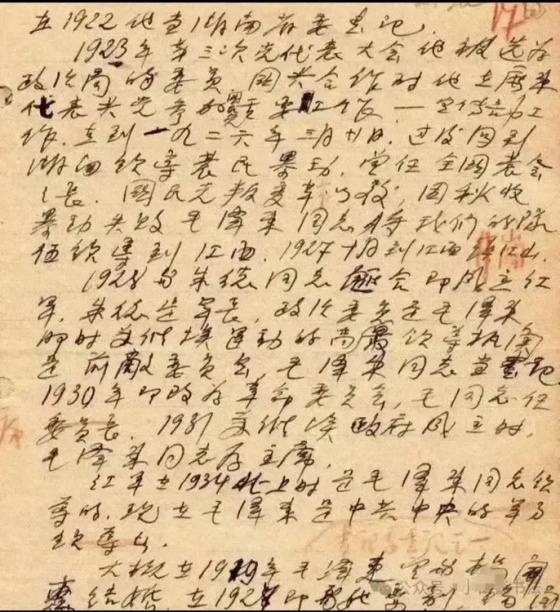 在1922他当湖南省委书记。
1923年第三次党代表大会他被选为
政治局的委员 国共合作时他在广东
代表共党参加 要工作 一 宣传部工
作，直到一九二六年三月廿日，过后回到
湖南领导农民暴动，曾任全国农会
会长。国民党叛变革命后，因秋收
暴动失败 毛泽东同志将我们的队
伍领导到江西，1927十月到江西井冈山。
1928与朱德同志 会 即成立红
军，朱德是军长，政治委员是毛泽东
同时苏维埃运动的高 领导机关
是前敌委员会，毛泽东同志当书记
1930年即改为革命委员会，毛同志任
委员长。1931苏维埃政府成立时，
毛泽东同志为主席。
红军在1934北上时是毛泽东同志领
导的，现在毛泽东是中共中央的
领导
大概在19 年毛泽东
结婚，在192
公众号